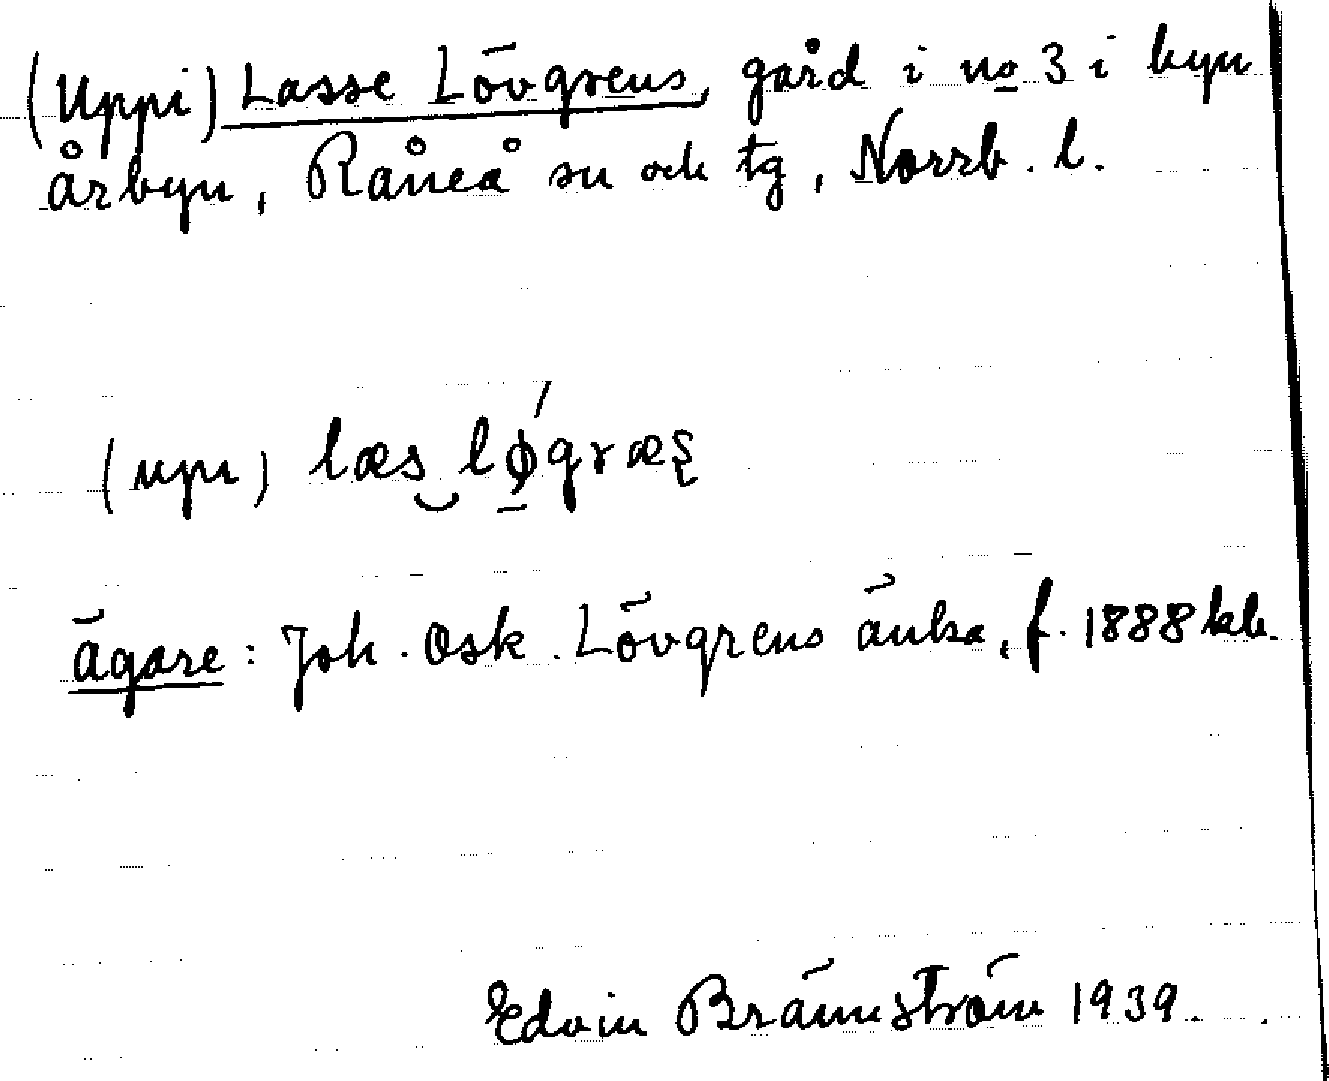 (Uppi) Lasse Lövgrens, gård i no 3 i byn
Årbyn, Råneå sn och tg, Norrb. l.
(upi) læs‿lǿgræs
ägare: Joh. Osk. Lövgrens änka, f. 1888
Edvin Brännström 1939.